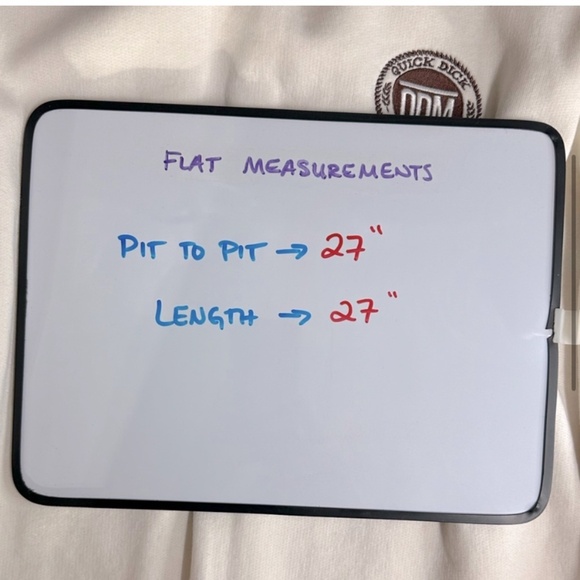 QUICK DICK
FLAT MEASUREMENTS
PIT TO PIT → 27"
LENGTH → 27"